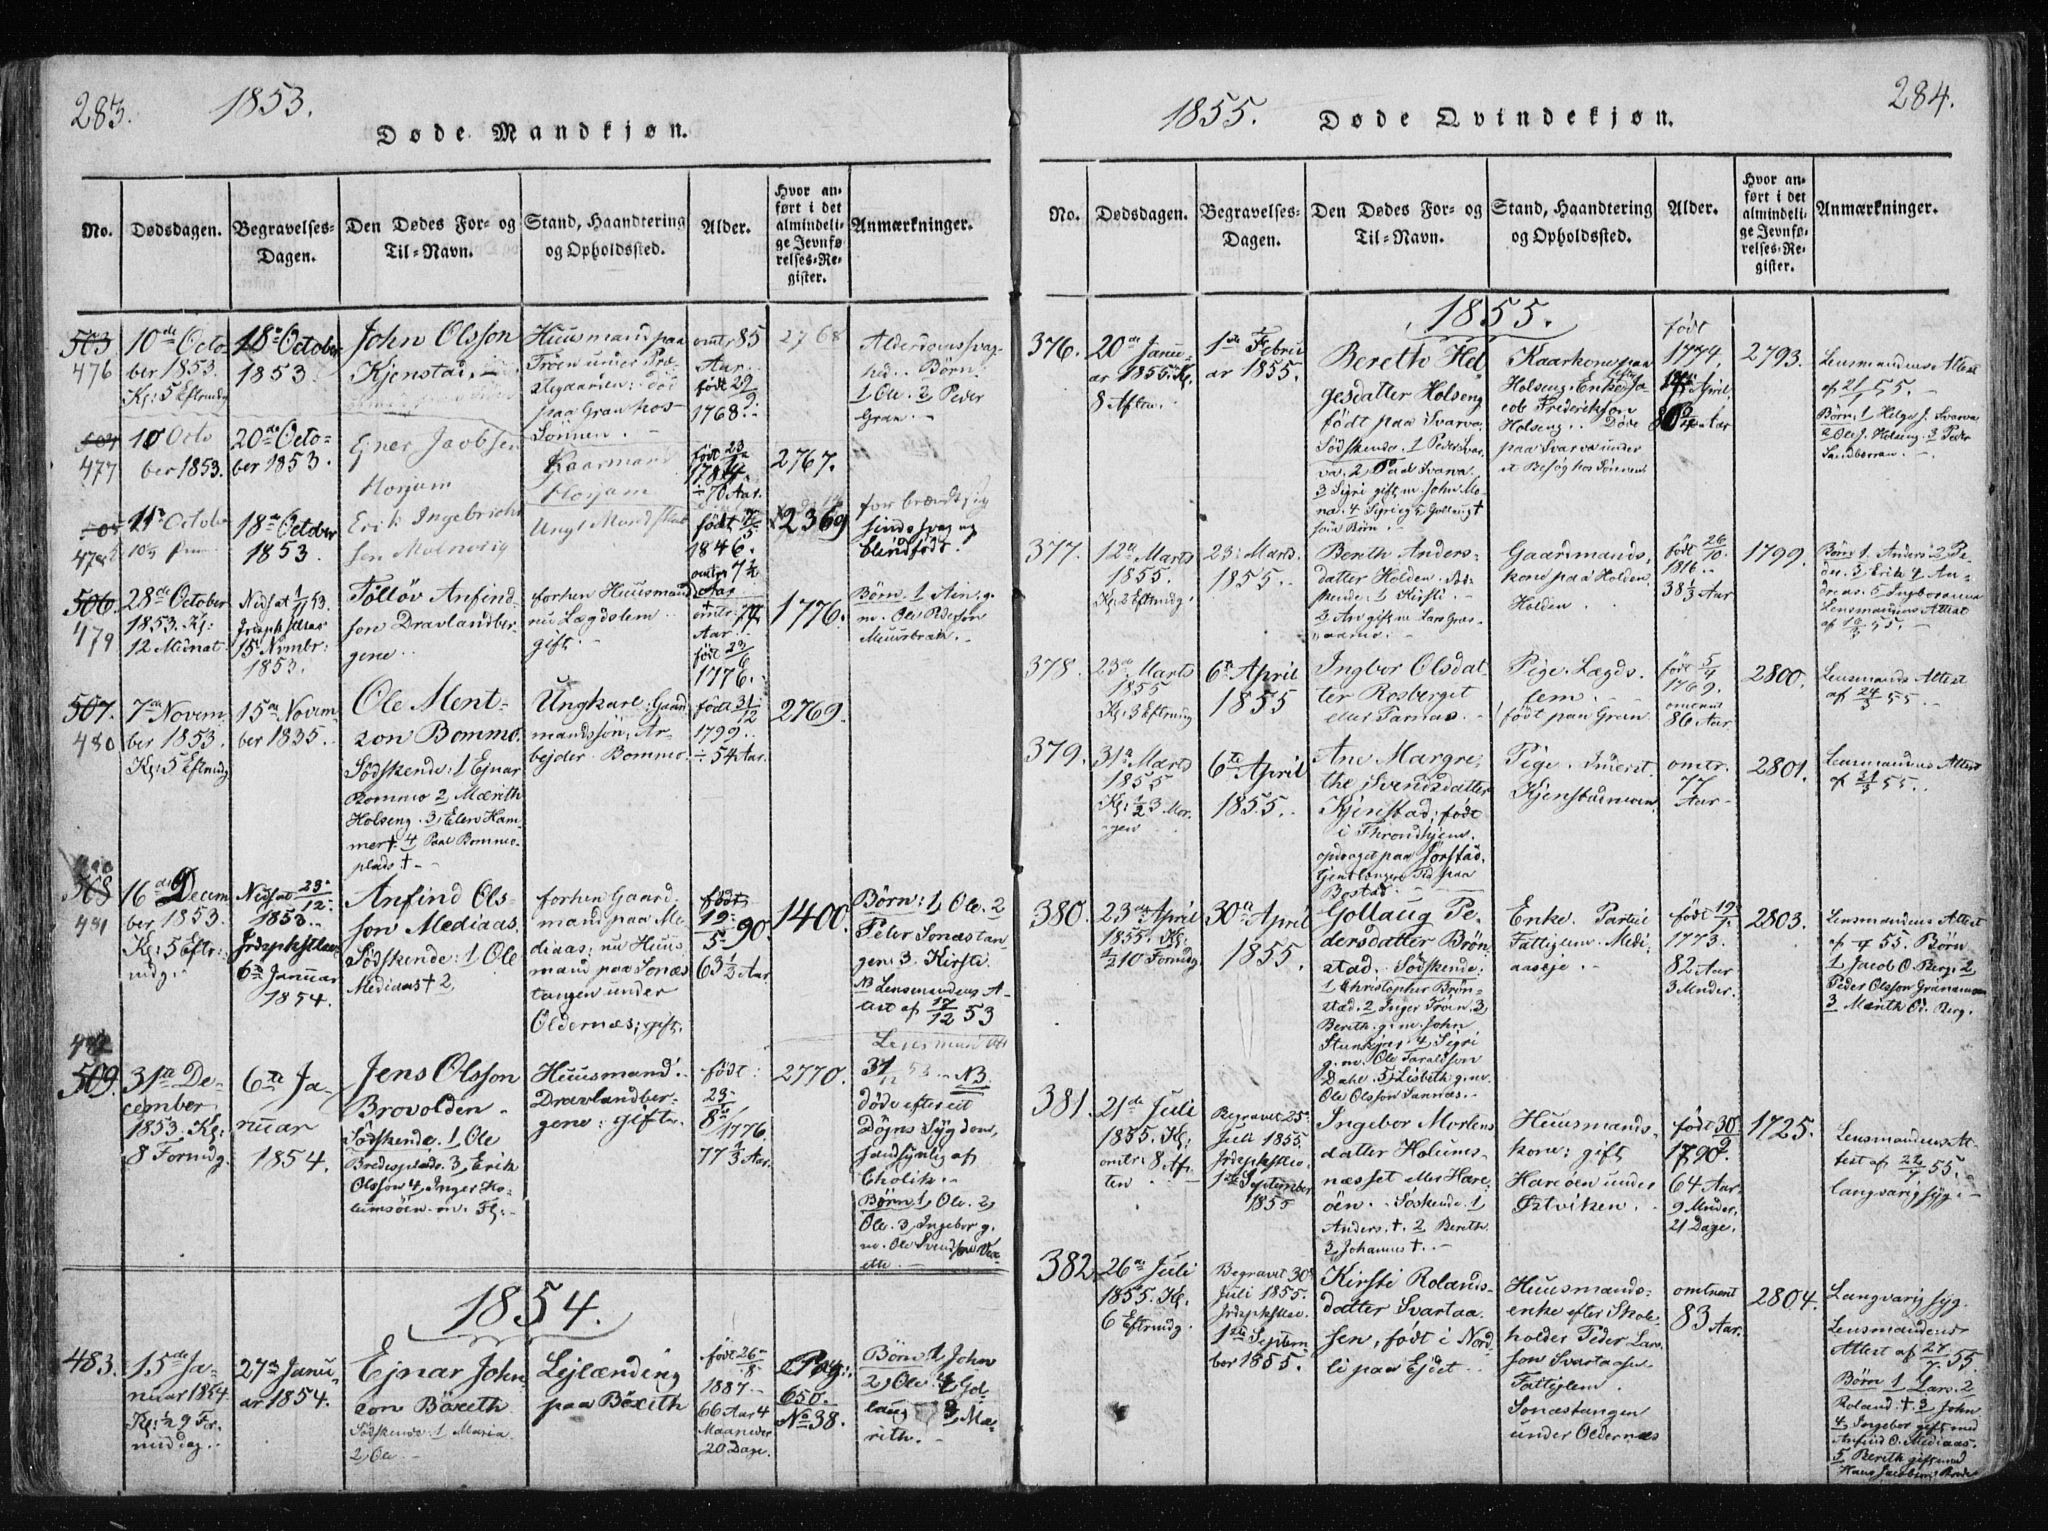 283.
1853.
Døde Mandkjøn.
No.
Dødsdagen.
Begravelses-
Dagen.
Den Dødes For- og
Til-Navn.
Stand, Haandtering
og Opholdssted.
Alder.
Hvor an-
ført i det
almindeli-
ge Jevnfø-
relses-Re-
gister.
Anmærkninger.
503
476
10de Octo-
ber 1853.
Kl: 5 Eftrmdg
18de October
1853.
John Olsson
Kjenstad.
Huusmand paa
Trøen under Præ-
stegaarden: død
paa Gran hos
Sönnen.
omtr 85
Aar.
født 29/9
1768.
2768
Alderdomssvag-
hed. Børn:
1 Ole. 2 Peder
Gran.
477
10 Octo
ber 1853.
20de Octo-
ber 1853.
Ejner Jacobsen
Horjem
Kaarmand
Horjem
født 23
÷ 70 Aar.
2767.
478
11te October
18de October
1853.
Erik Ingebrigt-
sen Molnevig
født
1846.
omtr 7 1/2
Aar.
2369
for brændt sig
sindssvag og
blindfødt.
506.
479
28de October
1853. Kl:
12 Midnat.
Nedsat 1/11 53.
Jrdspkstlse
15 Novmbr:
1853.
Tölløv Anfind-
son Dravlandber-
gene.
forhen Huusmand
nu Lægdslem.
gift.
omtr 77
Aar.
født 23/6
1776.
1776.
Børn 1 Ain. g.
m. Ole Pederson
507.
480
7de Novem-
ber 1853.
Kl: 5 Eftrmdg
15de Novem-
ber 1835.
Ole Ment-
zon Bommo.
Södskende: 1 Ejnar
Bommo 2 Mærith
Holseng. 3, Elen Ham-
mer †. 4 Paal Bommo-
plads †
Ungkarl: Gaard
mandssön; Ar-
bejder. Bommo.
født 31/12
1799.
÷ 54 Aar.
2769.
508
481
16de Decem
ber 1853.
Kl: 5 Eftr:
mdg.
Nedsat 23/12
1853.
Jrdspkstlse
6te Januar
1854.
Anfind Ols-
son Mediaas.
Södskende: 1 Ole
Mediaas † 2,
forhen Gaard-
mand paa Me-
diaas; nu Huus
mand paa Sonæs
tangen under
Oldernæs; gift.
født
19/5 90.
63 1/2 Aar
1400.
Børn: 1, Ole. 2
Peter Sonæstan
gen. 3. Kirsti.
NB Lensmandens A-
ttest af 17/12 53
482
509.
31te De-
cember
1853. Kl:
8 Formdg.
6te Ja-
nuar
1854.
Jens Olsson
Brovolden
Södskende. 1, Ole
Bredesplads. 3, Erik
Olsson 4, Inger Ho-
lumsöen. m. Fl:
Huusmand:
Dravlandber-
gene; gift.
født:
23/8 1776.
77 1/3 Aar.
2770.
NB
døde efter eit
Døgns Sygdom,
sandsynlig af
Cholik.
Børn 1, Ole. 2,
Ole. 3, Ingebor g.
m. Ole Svendson
1854.
483.
15de Ja-
nuar 1854.
Kl: 1/2 9 For-
middag.
27de Janu-
ar 1854.
Ejnar John-
son Böxeth
Södskende. 1 Maria
2, Ole.
Lejlænding
paa Böxeth
født 26/8
1887.
66 Aar 4
Maaneder
20 Dage.
Pag:
650.
No 38.
Børn 1, John
2, Ole. 4 Gol-
laug 3 Ma-
rith.
284.
1855.
Døde Qvindekjøn.
No.
Dødsdagen.
Begravelses-
Dagen.
Den Dødes For- og
Til-Navn.
Stand, Haandtering
og Opholdssted.
Alder.
Hvor an-
ført i det
almindeli-
ge Jevnfø-
relses-Re-
gister.
Anmærkninger.
1855.
376.
20de Janu-
ar 1855. Kl.
8 Aften.
1ste Febru
ar 1855.
Bereth Hel
gesdatter Holseng
født paa Svarva.
Södskende. 1 Peder Svar
va. 2, Paal Svarva.
3 Sigri gift m. John Mo-
na. 4 Sigri og 5 Gollaug †
som Børn.
Kaarkone paa
Holseng. Enke efter Ja-
cob Frederikson
Holseng. Døde
paa Svarva under
et Besøg hos Sönnen.
født
1774.
April,
2793.
Lensmandens Attest
af 21/1 55.
Børn: 1 Helge J. Svarva
2 Ole J. Holseng. 3 Peder
377.
12te Marts
1855.
Kl: 2 Eftrmdg.
23: Marts
1855.
Berith Anders-
datter Holden. Sö-
skende: 1 Kirsti.
2 Ane gift m Lars Græs-
aamo.
Gaardmands-
kone paa Holden
Holden.
født 26/10
1816.
38 1/3 Aar
1799.
Børn 1. Anders. 2 Pe-
der. 3 Erik 4 An-
dreas. 5 Ingboranna
Lensmandens Attest
af 16/3 55.
378.
23de Marts
1855
Kl: 3 Eftrmdg
6te April
1855
Ingbor Olsdat-
ter Rosberget
eller Tarnas.
Pige. Lægds-
lem.
født paa Gran
født 5/4
1769.
omtrent
86 Aar
2800.
Lensmands Attest
af 24/3 55.
379.
31te Marts
1855
Kl: 1/2 3 Mor-
gen
6te April
1855.
Ane Margre-
the Svendsdatter
Kjenstad; født
i Throndhjem.
opdraget paa Jørstad.
tjent længere Tid paa
Bostad.
Pige. Inderst.
Kjenstadmoen
omtr.
77
Aar.
2801.
Lensmandens Attest
af 31/3 55.
380.
23de April
1855. Kl:
1/2 10 Formdg
30te April
1855.
Gollaug Pe-
dersdatter Brøn-
stad. Södskende:
1 Christopher Brön-
stad. 2 Inger Trøen. 3,
Bereth. g. m. John
4 Sigri
g. m. Ole Taraldson
Dahl. 5, Lisbeth g. m.
Ole Olsson Sannæs.
Enke. Partiel
Fattiglem. Medi
aaseje.
født 19/1
1773.
82 Aar
3 Mnder.
2803.
Lensmandens Attest
55. Børn
1 Jacob O. Berg. 2
Peder Olsson Granamoen
3 Marith Od. Berg.
381.
21de Juli
1855. Kl:
omtr: 8 Af-
ten.
Begravet 25de
Juli 1855.
Jrdspkstlse
1ste September
1855
Ingebor Mortens
datter Holums-
næsset eller Hare-
öen. Söskende. 1
Anders. †. 2 Bereth.
3, Johannes †.
Huusmands-
kone; gift
Hareöen under
Østviken.
født 30/9
1790.
64 Aar
9 Mnder.
21 Dage.
1725.
Lensmandens At-
test af 22/7 55.
langvarig syg.
382.
26de Juli
1855. Kl.
6 Eftrmdg.
Begravet 30te
Juli 1855.
Jrdspkstlse.
1ste Septem-
ber 1855.
Kirsti Rolands-
datter Svartaa-
sen, født i Nord-
li paa Ejdet.
Huusmands-
enke efter Skole-
holder Peder Lar-
son Svartaasen
Fattiglem.
Sonæstangen
under Oldernæs
omtrent
83 Aar.
2804.
Langvarig syg.
Lensmandens
Attest af 27/7 55.
Børn 1 Lars. 2
Roland. † 3, John
4, Ingebor gift med
Anfind O. Mediaas.
5 Bereth gift med
Hans Jacobson